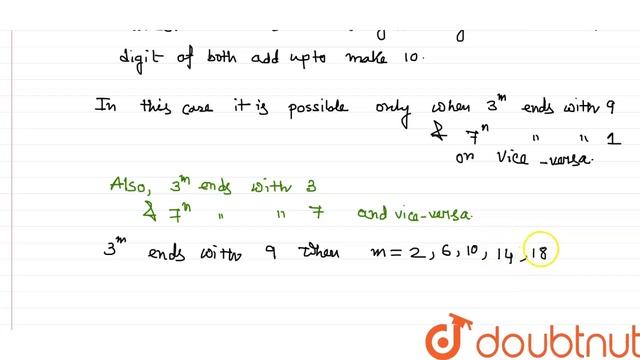 digit of both add upto make 10.
In this case it is possible only when 3^m ends with 9
& 7^n " " 1
or vice-versa.
Also, 3^m ends with 3
& 7^n " " 7 and vice-versa.
3^m ends with 9 when m = 2, 6, 10, 14, 18
doubtnut